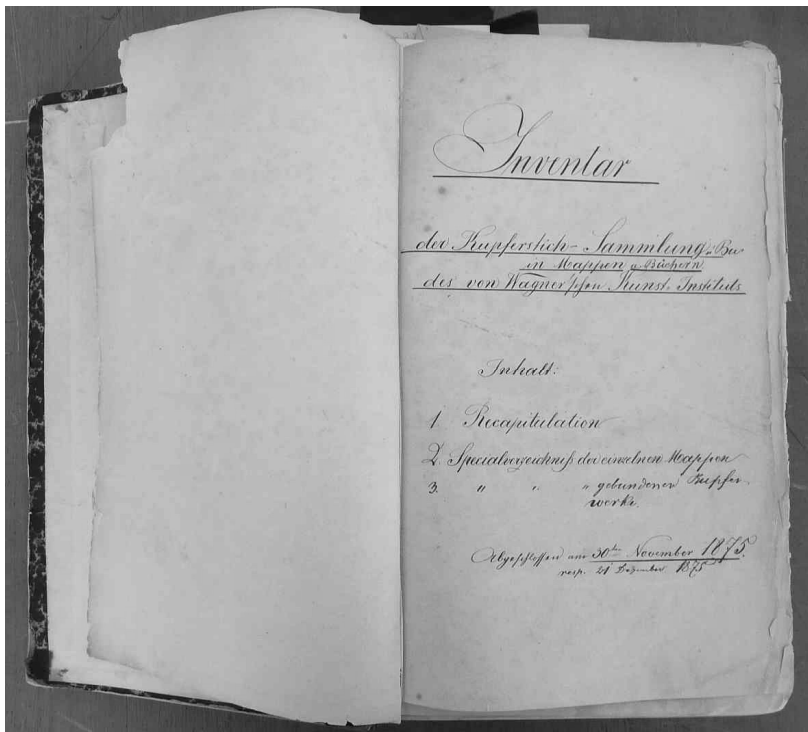 Inventar
der Kupferstich- Sammlung u. Bu
in Mappen u. Büchern
des von Wagner'schen Kunst-Instituts
Inhalt:
1. Recapitulation
2. Specialverzeichniß der einzelnen Mappen
3. " " " gebundener Kupfer-
werke.
Abgeschlossen am 30ten November 1875.
resp. 21 Dezember 1875